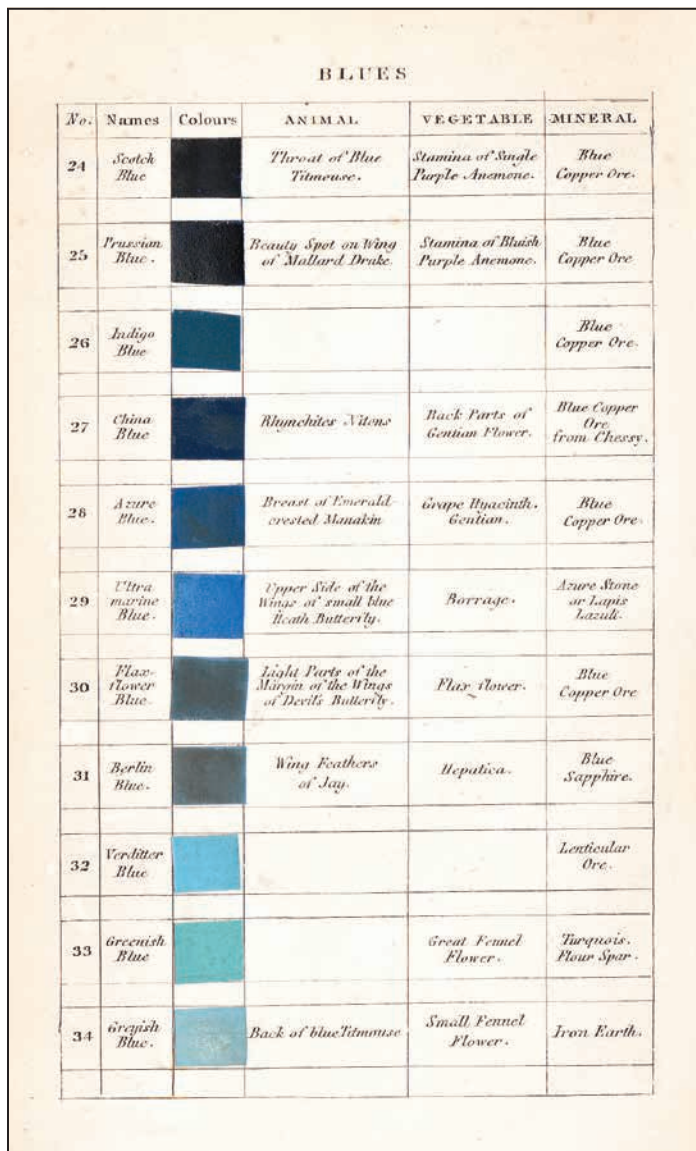 BLUES
No. Names Colours ANIMAL VEGETABLE MINERAL
24 Scotch Blue Throat of Blue Titmouse. Stamina of Single Purple Anemone. Blue Copper Ore.
25 Prussian Blue. Beauty Spot on Wing of Mallard Drake. Stamina of Bluish Purple Anemone. Blue Copper Ore
26 Indigo Blue Blue Copper Ore.
27 China Blue Rhynchites Nitens Back Parts of Gentian Flower. Blue Copper Ore from Chessy.
28 Azure Blue. Breast of Emerald-crested Manakin Grape Hyacinth. Gentian. Blue Copper Ore.
29 Ultra marine Blue. Upper Side of the Wings of small blue Heath Butterfly. Borrage. Azure Stone or Lapis Lazuli.
30 Flax-flower Blue. Light Parts of the Margin of the Wings of Devil's Butterfly. Flax flower. Blue Copper Ore
31 Berlin Blue. Wing Feathers of Jay. Hepatica. Blue Sapphire.
32 Verditter Blue Lenticular Ore.
33 Greenish Blue Great Fennel Flower. Turquois. Flour Spar.
34 Greyish Blue. Back of blue Titmouse Small Fennel Flower. Iron Earth.